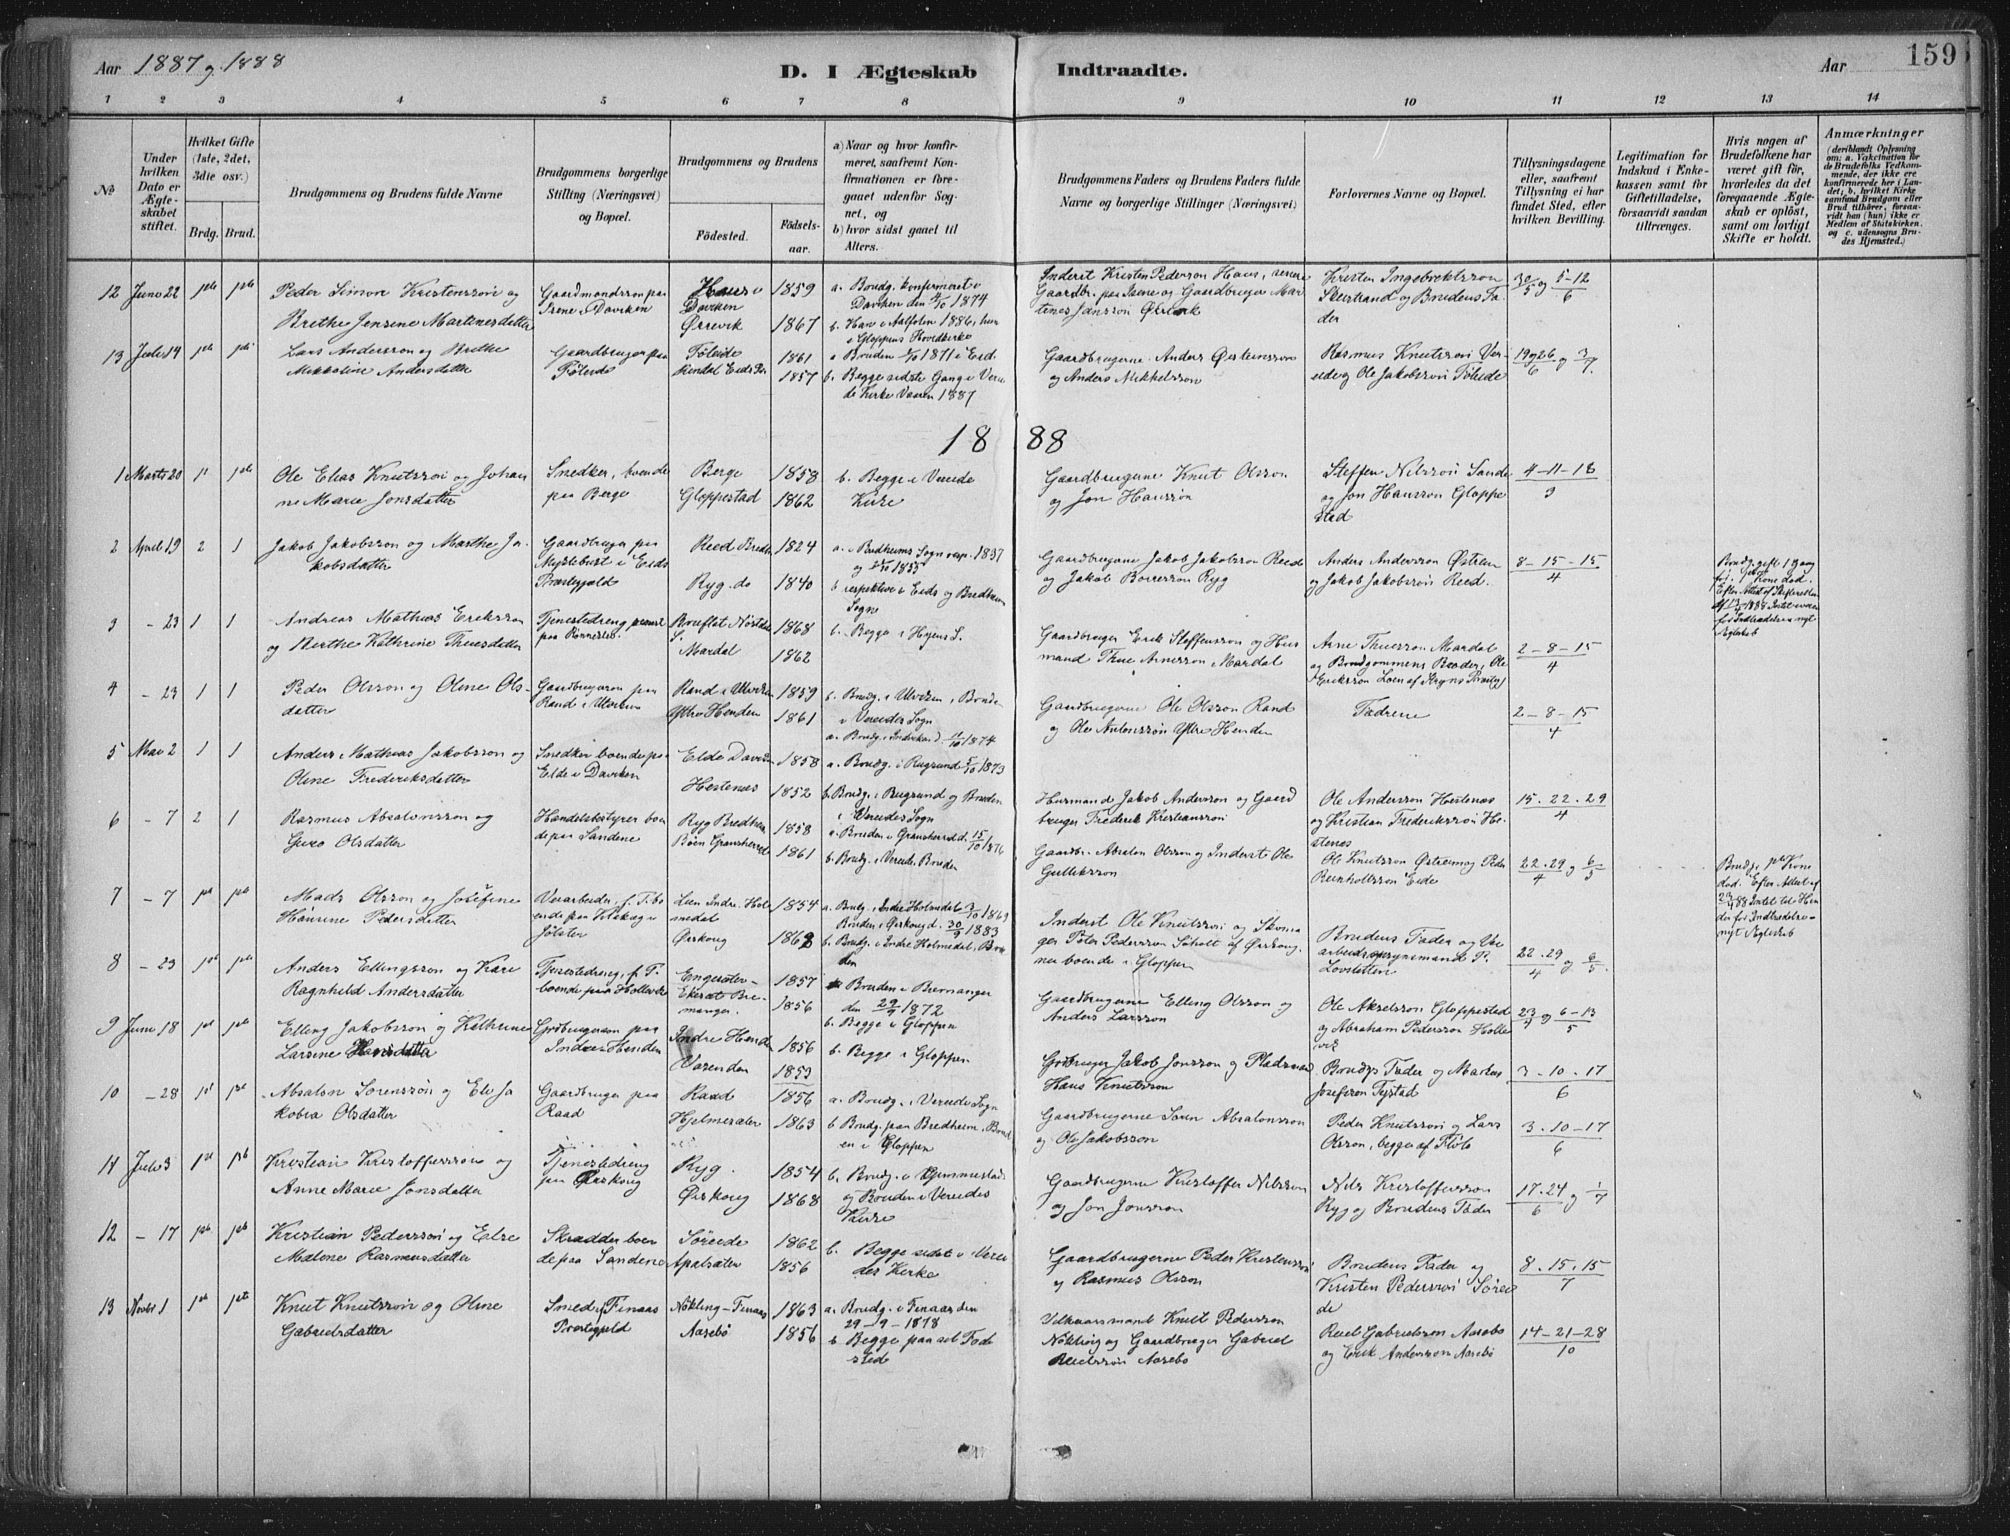 Aar 1887 og 1888
D. I Ægteskab Indtraadte.
Aar 159
1 2 3 4 5 6 7 8 9 10 11 12 13 14
No
Under hvilken Dato er Ægteskabet stiftet.
Hvilket Gifte (1ste, 2det, 3die osv.)
Brdg. Brud.
Brudgommens og Brudens fulde Navne
Brudgommens borgerlige Stilling (Næringsvei) og Bopæl.
Brudgommens og Brudens
Fødested.
Fødselsaar.
a) Naar og hvor konfirmeret, saafremt Konfirmationen er foregaaet udenfor Sognet, og
b) hvor sidst gaaet til Alters.
Brudgommens Faders og Brudens Faders fulde Navne og borgerlige Stillinger (Næringsvei)
Forlovernes Navne og Bopæl.
Tillysningsdagene eller, saafremt Tillysning ei har fundet Sted, efter hvilken Bevilling.
Legitimation for Indskud i Enkekassen samt for Giftetilladelse, forsaavidt saadan tiltrænges.
Hvis nogen af Brudefolkene har været gift før, hvorledes da det foregaaende Ægteskab er opløst, samt om lovligt Skifte er holdt.
Anmærkninger
(deriblandt Oplysning om: a. Vakcination for de Brudefolks Vedkommende, der ikke ere konfirmerede her i Landet; b. hvilket Kirkesamfund Brudgom eller Brud tilhører, forsaavidt han (hun) ikke er Medlem af Statskirken, og c. udensogns Brudes Hjemsted.)
12 Juni 22 Peder Simon Kristenssön og
Brethe Jensine Martinesdatter
Gaardmandssøn paa
Isene i Daviken
Haus i
Daviken
Ørrevik
1859
1867
a. Brudg. konfirmeret i
Daviken den 1874
b. Han i Aalfoten 1886, hun
i Gloppens Hovedkirke
Inderst Kristen Pederson Haus, senere
Gaardbr. paa Isene og Gaardbruger Martenes Jansson
Kristen Ingebrektsson
Skeistrand og Brudens Fader
30/5 og 5-12/6
13 Juli 14 Lars Andersson og Brithe
Mikkoline Andersdatter
Gaardbruger paa
Föleide
Föleide
1861
1857
a Bruden 1871 i Eid
b. Begge sidste Gang i Vereide Kirke Vaaren 1887
Gaardbrugerne Anders Østensson
og Anders Mikkelsson
Rasmus Knutssön Vereide og Ole Jakobssön Föleide
19 og 26/6 og 3/7
1888
1 Marts 20 Ole Elias Knutssön og Johanne Marie Jonsdatter
Snedker, boende
paa Berge
Berge
Gloppestad
1858
1862
b. Begge i Vereide
Kirke
Gaardbrugerne Knut Olsson
og Jon Hanssön
Steffen Nilssön Sande
og Jon Hansson Gloppestad
4-11-18/3
2 April 19 2 1 Jakob Jakobsson og Marthe Jakobsdatter
Gaardbruger paa
Myklebust i Eids
Præstegjeld
Reed Bredh.
Ryg do
1824
1840
a. i Bredheims Sogn resp. 1837
og 1855
b respektive i Eids og Bredheim
Sogne
Gaardbrugerne Jakob Jakobsson Reed
og Jakob Ryg
Anders Andersson Østrem
og Jakob Jakobssön Reed.
8-15-15/4
Brudg. gift 1 Gang
før. Kone død.
Efter Attest af Skifteretten
af 1888 Intet ivejen
for Indtrædelse i nyt
Ægteskab
3 - 23 1 1 Andreas Mathias Eriksson
og Berthe Kathrine Thuesdatter
Tjenestedreng
paa
Mardal
1868
1862
b. Begge i Hyens S.
Gaardbruger Erik Steffensson og Husmand Thue Arnesson Mardal
Arne Thuesson Mardal
og Brudgommens Broder, Ole
Eriksson Loen af Stryns Præstegj
2-8-15/4
4 - 23 1 1 Peder Olsson og Oline Olsdatter
Gaardbrugersøn paa
Rand i Utviken
Rand i Utviken
Ytre Henden
1859
1861
b. Brudg. i Utviken, Bruden
i Vereides Sogn
a. Brudg. i Indviken d. 11/10 1874
Gaardbrugerne Ole Olsson Rand
og Ole Antonssön Ytre Henden
Fædrene
2-8-15/4
5 Mai 2 1 1 Anders Mathias Jakobsson og
Oline Frederiksdatter
Snedker boende paa
Elde i Daviken
Elde Daviken
Hestenæs
1858
1852
a. Brudg. i Rugsund 5/10 1873
b. Brudg. i Rugsund og Bruden
i Vereides Sogn
Husmand Jakob Andersson og Gaardbruger Frederik Kristianssön
Ole Andersson Hestenæs
og Kristian Frederikssön Hestenæs
15.22.29/4
6 - 7 2 1 Rasmus Absalonsson og
Guro Olsdatter
Handelsbestyrer boende paa Sandene
Ryg Bredheim
Böen Gransherred
1858
1861
a. Bruden i Gransherred d. 15/10 1876
b. Brudg. i Vereide, Bruden
Gaardbr. Absalon Olsson og Inderst Ole
Gulliksson
Ole Knutsson Østrem og Peder
Reinholtsson Eide
22.29/4 og 6/5
Brudg. Kone
død. Efter Attest af
23/4 88 Intet til Hinder for Indtrædelse i
nyt Ægteskab
7 - 7 Mads Olsson og Josefine
Hansine Pedersdatter
Veiarbeider, f. T. boende paa i
Jölster
Lien Indre Holmedal
Ørskoug
1854
1862
a. Brudg. i Indre Holmedal 3/10 1869
Bruden i Ørskoug d. 30/9 1883
b. Brudg. i Indre Holmedal, Bruden
Inderst Ole Knutssön og Skomager Peter Pedersson Søholt af Ørskoug
nu boende i Gloppen
Brudens Fader og Veiarbeidsopsynsmand P.
22.29/4 og 6/5.
8 - 23 Anders Ellingsson og Kari
Ragnhild Andersdatter
Tjenestedreng, f. T.
boende paa Hollevik
Bremanger.
1857
1856
a Bruden i Bremanger
den 29/9 1872
b. Begge i Gloppen
Gaardbrugerne Elling Olsson og
Anders Larsson
Ole Akselsson Gloppestad
og Abraham Pedersson Hollevik
23/4 og 6-13/5
9 Juni 18 Elling Jakobsson og Kathrine
Larsine Hansdatter
Gdbrugersøn paa
Indre Henden
Indre Henden
Vasenden
1856
1853
b. Begge i Gloppen
Gdbruger Jakob Jonsson og Pladsmand
Hans Knutsson
Brudgs Fader og Martin
Josefson Tystad
3-10-17/6
10 - 28 Absalon Sørenssön og Eli Jakobia Olsdatter
Gaardbruger paa
Raad
Raad
Hjelmesæter
1856
1863
a. Brudg. i Vereide Sogn
b Brudg. paa Bredheim, Bruden i Gloppen
Gaardbrugerne Søren Absalonsson
og Ole Jakobsson
Peder Knutssön og Lars
Olsson, begge af Flöle
3-10-17/6
11 Juli 3 Kristian Kristoffersson og
Anne Marie Jonsdatter
Tjenestedreng
paa Ørskoug
Ryg.
Ørskoug
1854
1868
b. Brudg. i Gimmestad
og Bruden i Vereides
Kirke
Gaardbrugerne Kristoffer Nilsson
og Jon Jonsson
Nils Kristoffersson
Ryg og Brudens Fader
17.24/6 og 1/7
12 - 17 Kristian Pederssön og Else
Malene Rasmusdatter
Skrædder boende paa Sandene
Søreide
Apalsæter
1862
1856
b. Begge sidst i Vereides Kirke
Gaardbrugerne Peder Kristenssön
og Rasmus Olsson
Brudens Fader og
Kristen Pederssön Søreide
8.15.15/7
13 Novbr 1 Knut Knutssön og Oline
Gabrielsdatter
Smed, Finaas
Præstegjeld
Nökling - Finaas
Aasebö
1863
1856
a. Brudg. i Finaas den
29-9-1878
b. Begge paa sit Fødested
Vilkaarsmand Knut Pedersson
Nökling og Gaardbruger Gabriel
Reielssön Aasebö
Reiel Gabrielsson Aasebö
og Erik Andersson Aasebö
14-21-28/10